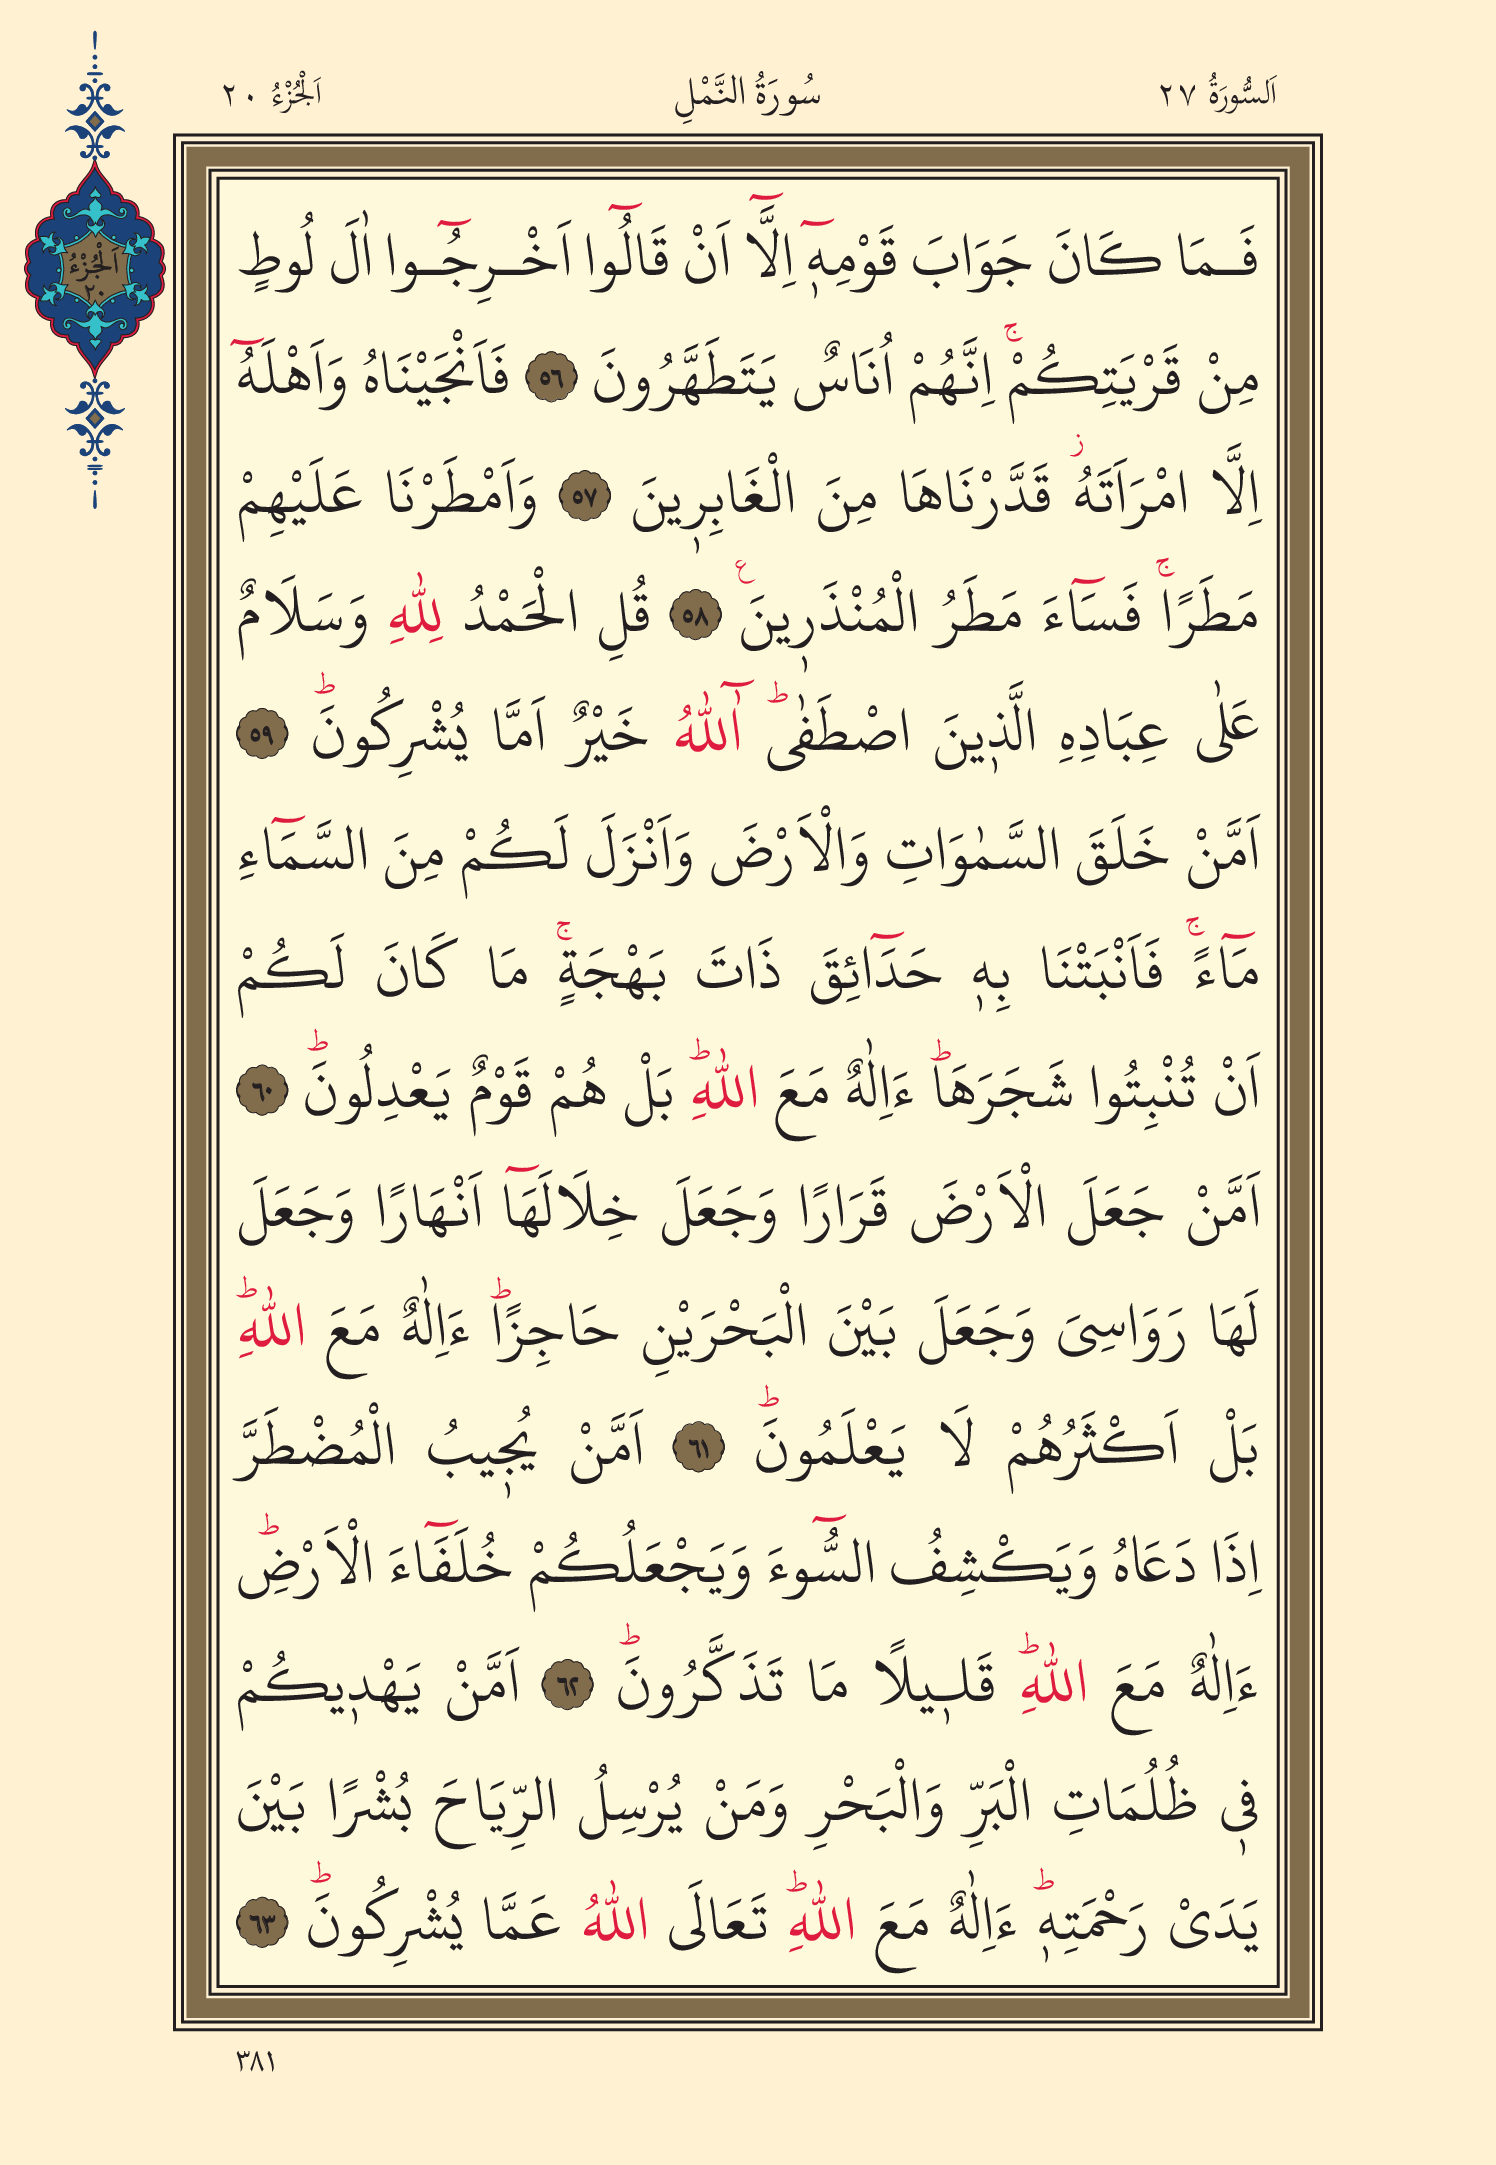 اَلسُّورَةُ ٢٧
سُورَةُ النَّمْلِ
اَلْجُزْءُ ٢٠
اَلْجُزْءُ
٢٠
فَـمَا كَانَ جَوَابَ قَوْمِه۪ٓ اِلَّٓا اَنْ قَالُٓوا اَخْـرِجُـٓوا اٰلَ لُوطٍ
مِنْ قَرْيَتِكُمْۚ اِنَّهُمْ اُنَاسٌ يَتَطَهَّرُونَ ﴿٥٦﴾ فَاَنْجَيْنَاهُ وَاَهْلَهُٓ
اِلَّا امْرَاَتَهُۘ قَدَّرْنَاهَا مِنَ الْغَابِر۪ينَ ﴿٥٧﴾ وَاَمْطَرْنَا عَلَيْهِمْ
مَطَرًاۚ فَسَٓاءَ مَطَرُ الْمُنْذَر۪ينَ ع ﴿٥٨﴾ قُلِ الْحَمْدُ لِلّٰهِ وَسَلَامٌ
عَلٰى عِبَادِهِ الَّذ۪ينَ اصْطَفٰىؕ آٰللّٰهُ خَيْرٌ اَمَّا يُشْرِكُونَؕ ﴿٥٩﴾
اَمَّنْ خَلَقَ السَّمٰوَاتِ وَالْاَرْضَ وَاَنْزَلَ لَكُمْ مِنَ السَّمَٓاءِ
مَٓاءًۚ فَاَنْبَتْنَا بِه۪ حَدَٓائِقَ ذَاتَ بَهْجَةٍۚ مَا كَانَ لَكُمْ
اَنْ تُنْبِتُوا شَجَرَهَاؕ ءَاِلٰهٌ مَعَ اللّٰهِؕ بَلْ هُمْ قَوْمٌ يَعْدِلُونَؕ ﴿٦٠﴾
اَمَّنْ جَعَلَ الْاَرْضَ قَرَارًا وَجَعَلَ خِلَالَهَٓا اَنْهَارًا وَجَعَلَ
لَهَا رَوَاسِىَ وَجَعَلَ بَيْنَ الْبَحْرَيْنِ حَاجِزًاؕ ءَاِلٰهٌ مَعَ اللّٰهِؕ
بَلْ اَكْثَرُهُمْ لَا يَعْلَمُونَؕ ﴿٦١﴾ اَمَّنْ يُج۪يبُ الْمُضْطَرَّ
اِذَا دَعَاهُ وَيَكْشِفُ السُّٓوءَ وَيَجْعَلُكُمْ خُلَفَٓاءَ الْاَرْضِؕ
ءَاِلٰهٌ مَعَ اللّٰهِؕ قَل۪يلًا مَا تَذَكَّرُونَؕ ﴿٦٢﴾ اَمَّنْ يَهْد۪يكُمْ
ف۪ى ظُلُمَاتِ الْبَرِّ وَالْبَحْرِ وَمَنْ يُرْسِلُ الرِّيَاحَ بُشْرًا بَيْنَ
يَدَىْ رَحْمَتِه۪ؕ ءَاِلٰهٌ مَعَ اللّٰهِؕ تَعَالَى اللّٰهُ عَمَّا يُشْرِكُونَؕ ﴿٦٣﴾
٣٨١